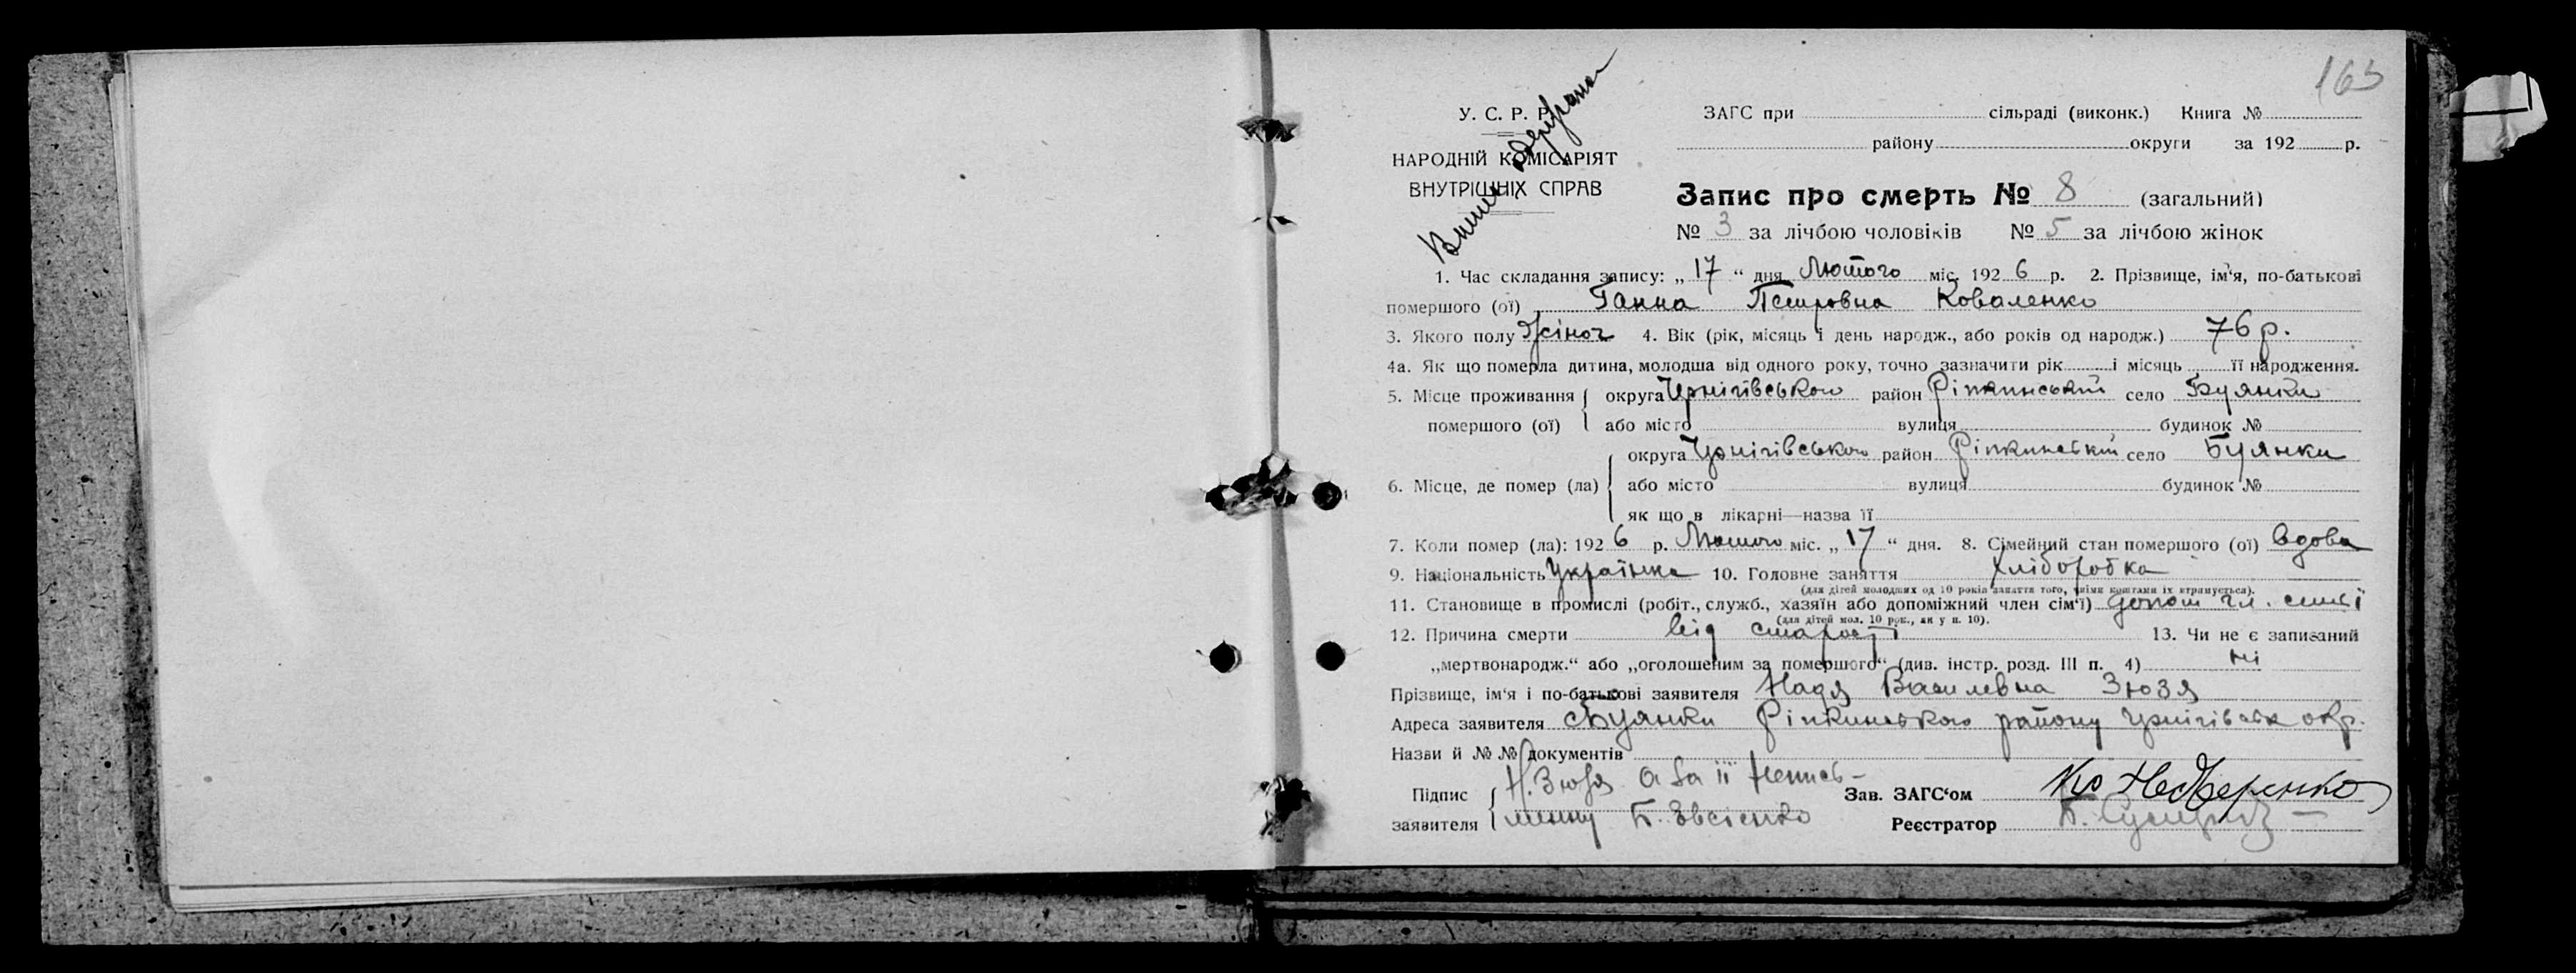 163
У. С. Р. Р.
НАРОДНІЙ КОМІСАРІЯТ
ВНУТРІШНІХ СПРАВ
ЗАГС при сільраді (виконк.) Книга №
району округи за 192 р.
Запис про смерть № 8 (загальний)
№ 3 за лічбою чоловіків № 5 за лічбою жінок
1. Час складання запису: „ 17 “ дня Лютого міс. 192 6 р. 2. Прізвище, ім‘я, по-батькові
помершого (ої) Ганна Петровна Коваленко
3. Якого полу Жіноч 4. Вік (рік, місяць і день народж., або років од народж.) 76 р.
4а. Як що померла дитина, молодша від одного року, точно зазначити рік і місяць її народження.
5. Місце проживання округа Чернігівською район Ріпкинський село Буянки
помершого (ої) або місто вулиця будинок №
округа Чернігівською район Ріпкинський село Буянки
6. Місце, де помер (ла) або місто вулиця будинок №
як що в лікарні—назва її
7. Коли помер (ла): 192 6 р. Лютого міс. „ 17 “ дня. 8. Сімейний стан помершого (ої) Вдова
9. Національність Українка 10. Головне заняття Хліборобка
(для дітей молодших од 10 років заняття того, чиїми коштами їх втримується).
11. Становище в промислі (робіт., служб., хазяїн або допоміжний член сім‘ї) допом чл. сімї
(для дітей мол. 10 рок., як у п. 10).
12. Причина смерти від старості 13. Чи не є записаний
„мертвонародж.“ або „оголошеним за помершого“ (див. інстр. розд. III п. 4) ні
Прізвище, ім‘я і по-батькові заявителя Надя Василевна Зюзя
Адреса заявителя с Буянки Ріпкинського району Чернігівськ окр.
Назви й № № документів
Підпис Н. Зюзя а за її непись-
заявителя менну Б. Євсієнко
Зав. ЗАГС‘ом
Реєстратор